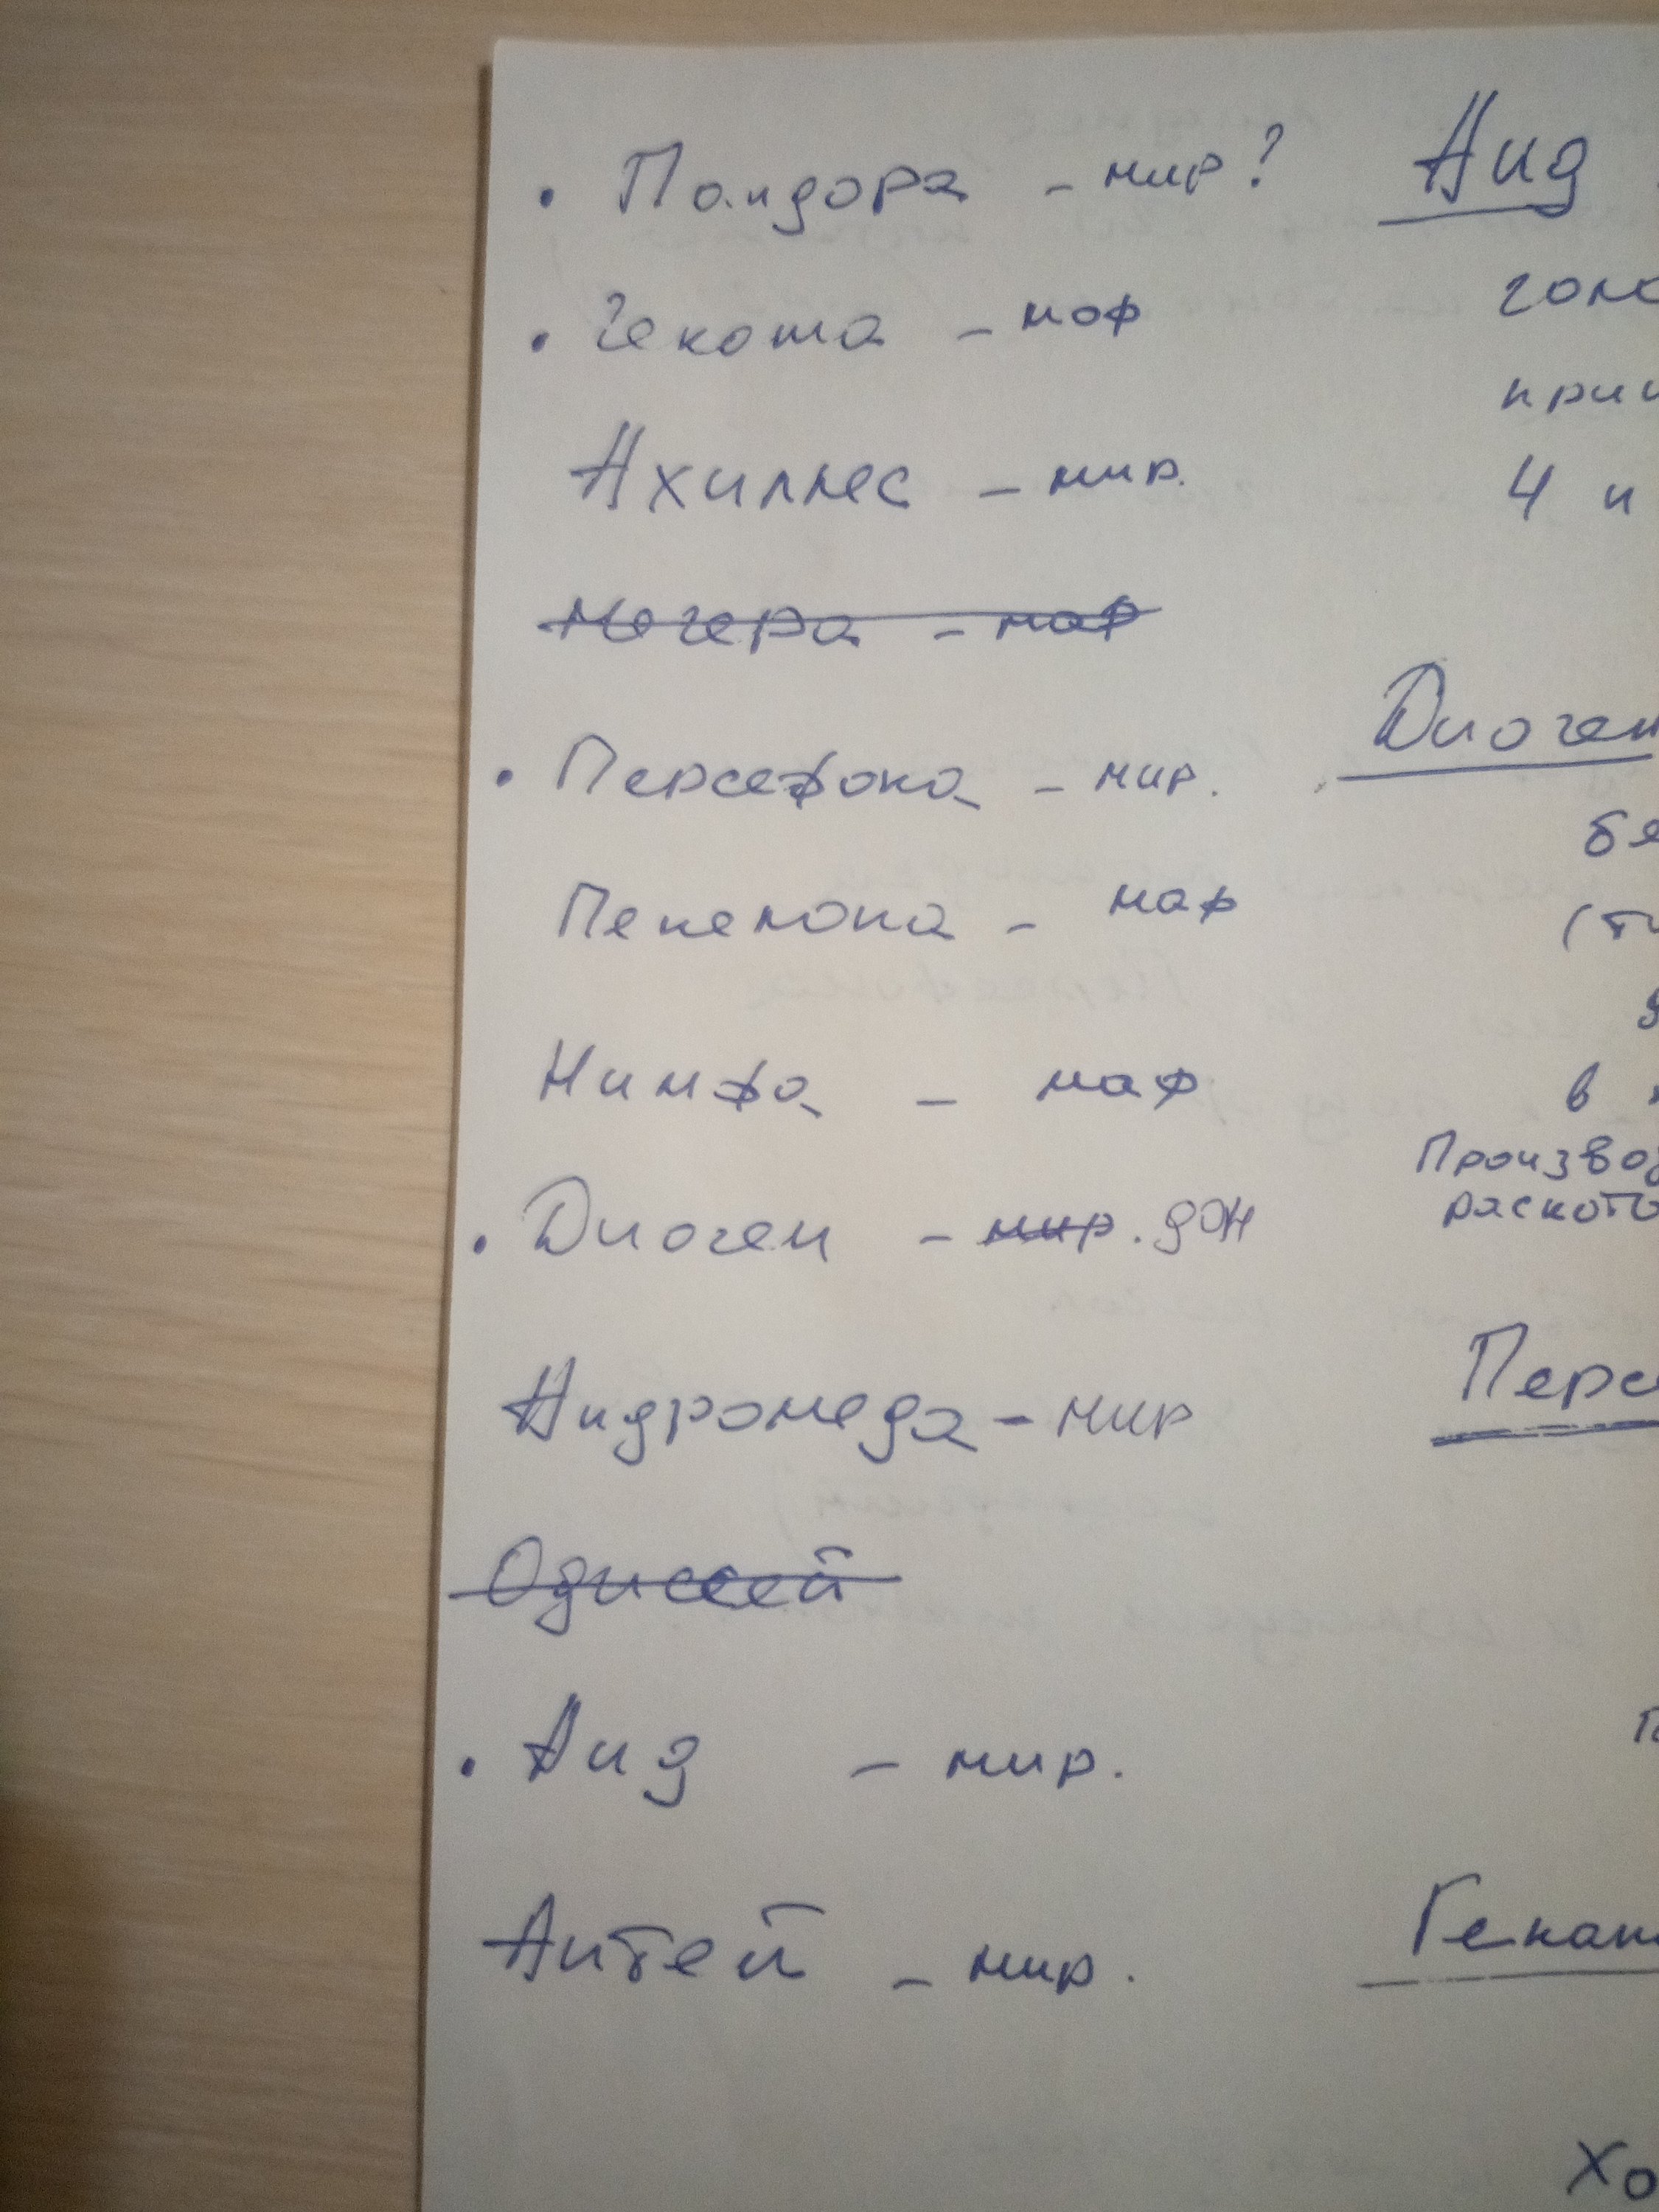 • Пандора – мир?
• Геката – маф
Ахиллес – мир.
Мегера – маф
• Персефона – мир.
Пенелопа – маф
Нимфа – маф
• Диоген – мир. дон
Андромеда – мир
Одиссей
• Аид – мир.
Антей – мир.
Аид
голо
4 и
Диоген
бе
(ти
в
Производ
раското
Персе
Гекат
Хо